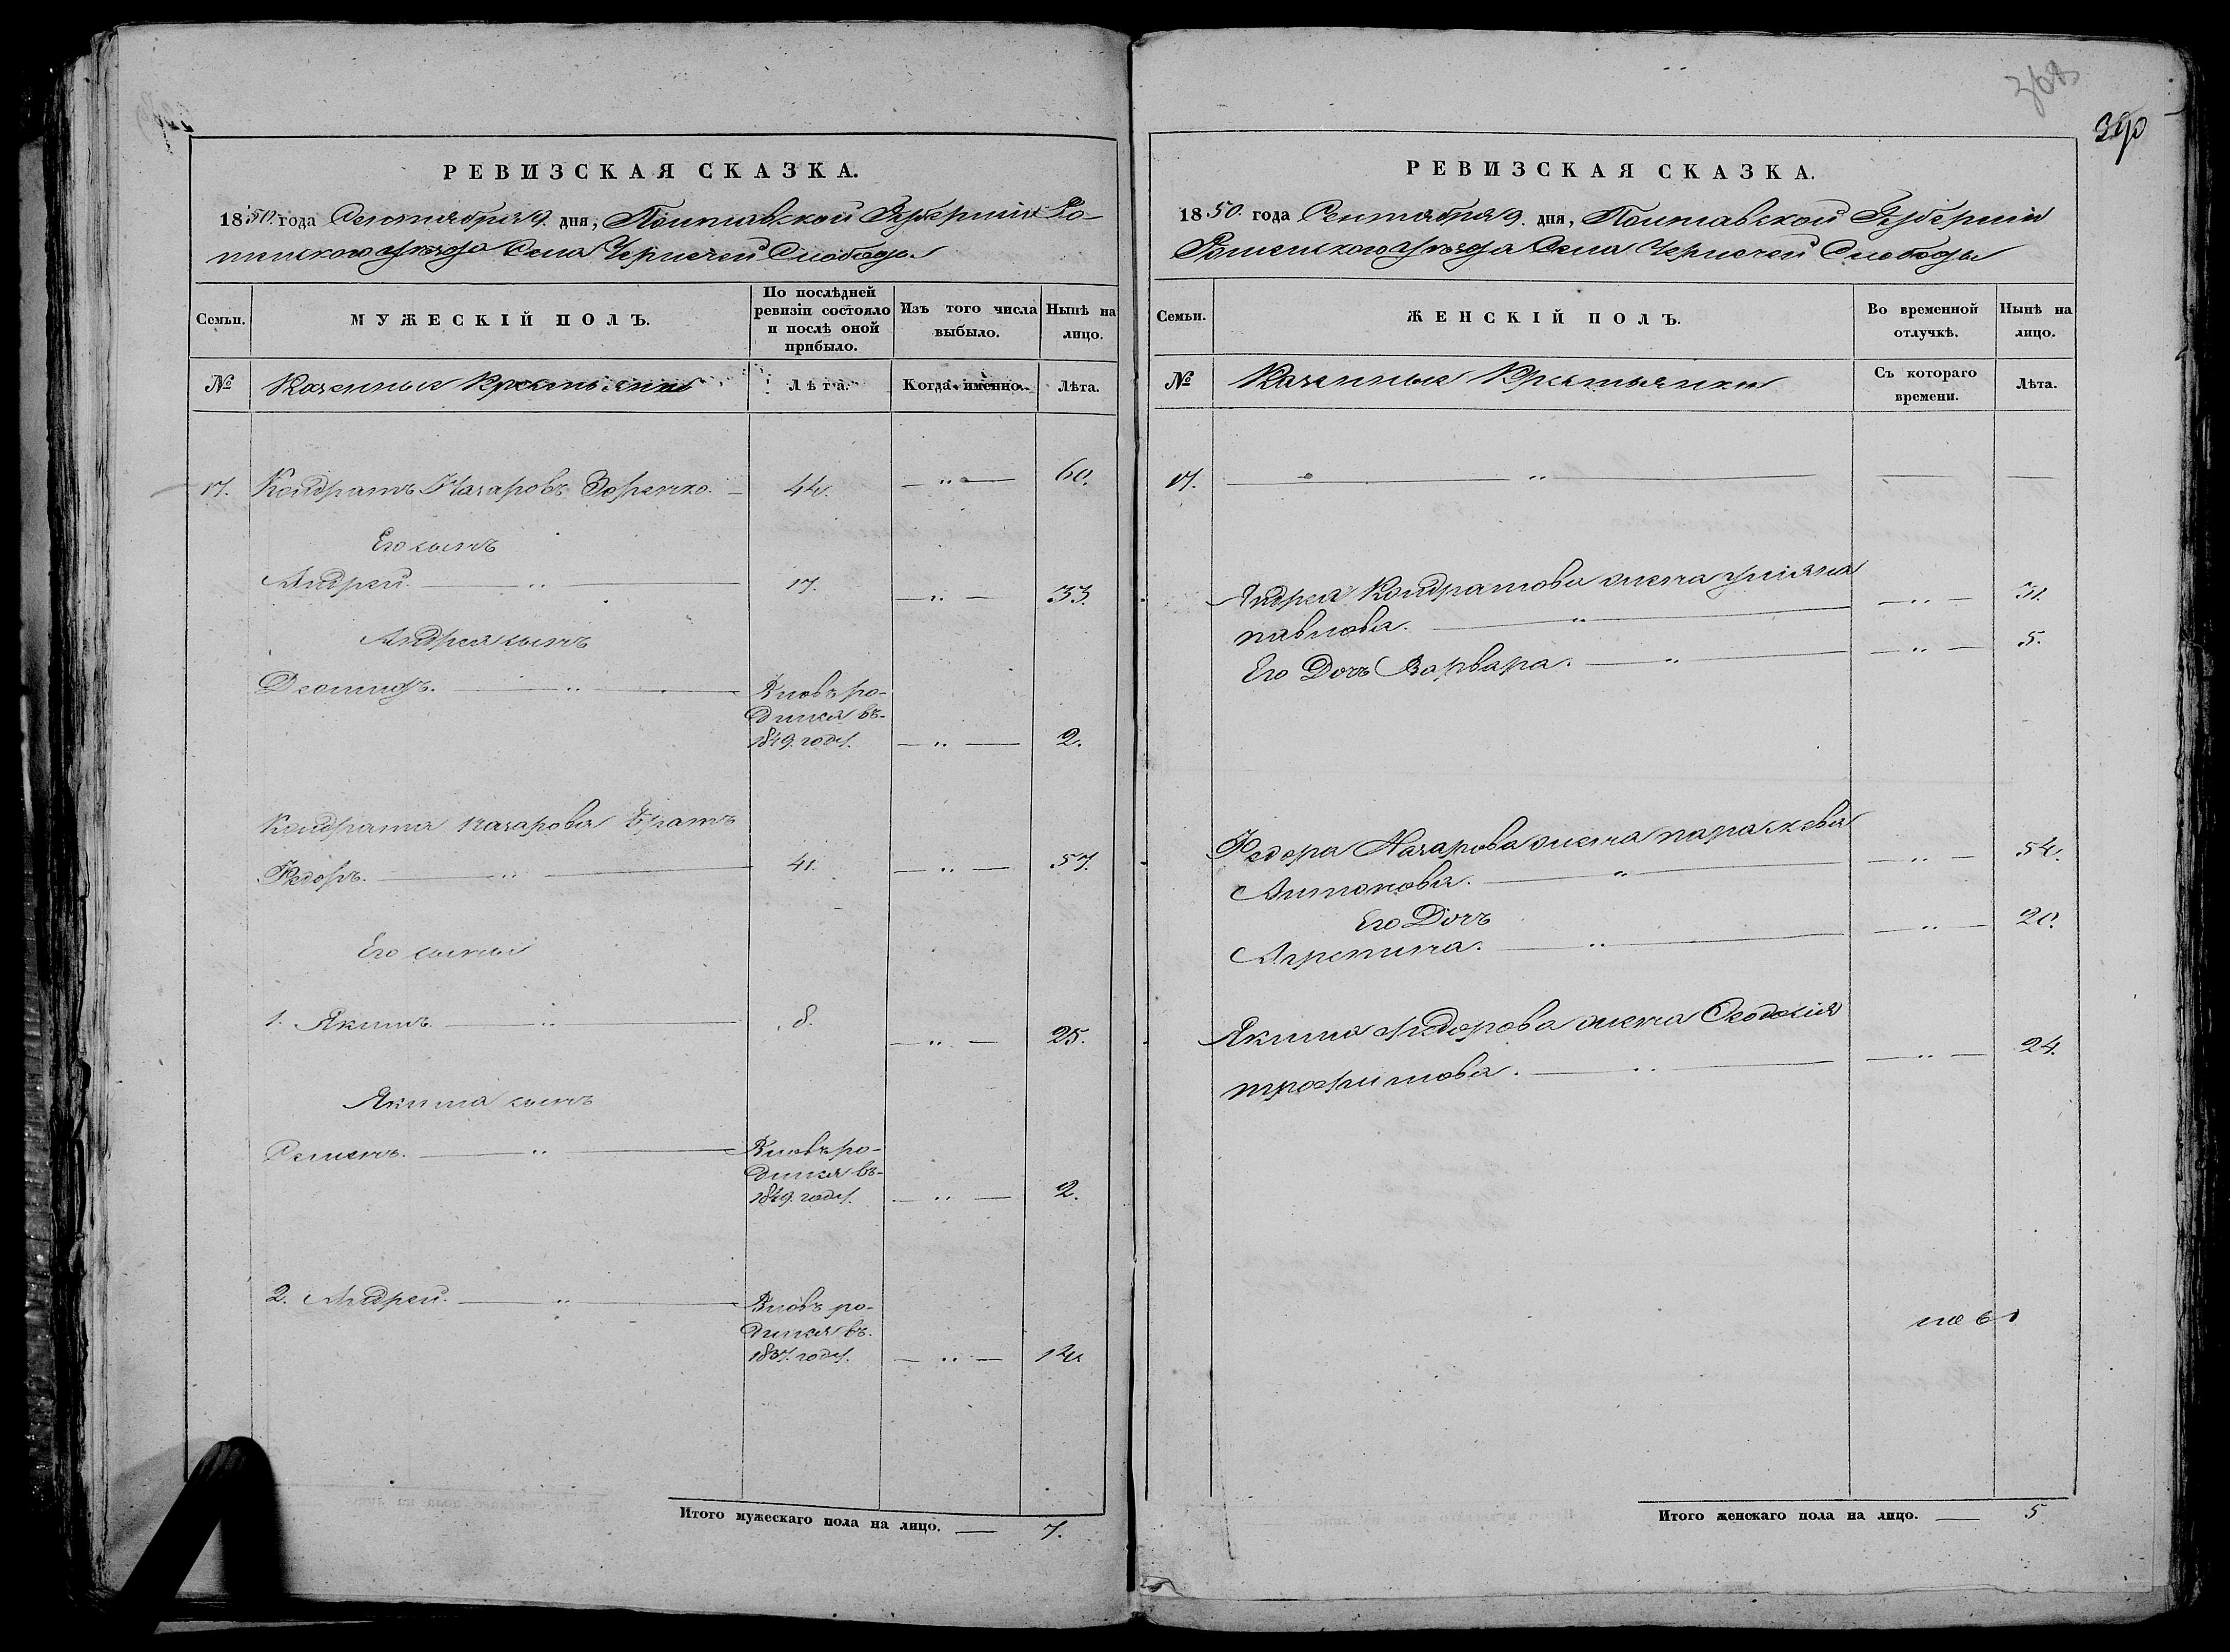 РЕВИЗСКАЯ СКАЗКА.
1850. года Сентября 9. дня, Полтавской Губернии Ро-
менского уезда Села Чернечей Слободы
Семьи.
МУЖЕСКІЙ ПОЛЪ.
По послѣдней
ревизіи состояло
и послѣ оной
прибыло.
Изъ того числа
выбыло.
Нынѣ на
лицо.
№
Казенные Крестьяне
Лѣта.
Когда именно.
Лѣта.
17. Кондратъ Назаровъ 44. — „ — 60.
Его сынъ
Андрей. — „ — 17. — „ — 33.
Андрея сынъ
Леонидъ. — „ — Вновь ро-
дился въ-
1849. году. — „ — 2.
Кондрата Назарова братъ
Федоръ. — „ — 41. — „ — 57.
Его сыновья
1. Якимъ. — „ — 8. — „ — 25.
Якима сынъ
Семенъ. — „ — Вновь ро-
дился въ-
1849. году. — „ — 2.
2. Андрей. — „ — Вновь ро-
дился въ.
1837. году. — „ — 14
Итого мужескаго пола на лицо. — 7.
368
390
РЕВИЗСКАЯ СКАЗКА.
1850. года Сентября 9. дня, Полтавской Губерніи
Роменского уезда Села Чернечей Слободы
Семьи.
ЖЕНСКІЙ ПОЛЪ.
Во временной
отлучкѣ.
Нынѣ на
лицо.
№
Казенные Крестьянки
Съ котораго
времени.
Лѣта.
17. — „ — — —
Андрея Кондратова жена Уліяна
павлова. — „ — — „ — 31.
Его Дочь Варвара. — „ — — „ — 5.
Федора Назарова жена параскева
Антонова. — „ — — „ — 54.
Его Дочь
Агрепина. — „ — — „ — 20.
Якима Федорова жена Феодосія
трофимова. — „ — — „ — 24.
Итого женскаго пола на лицо. — 5